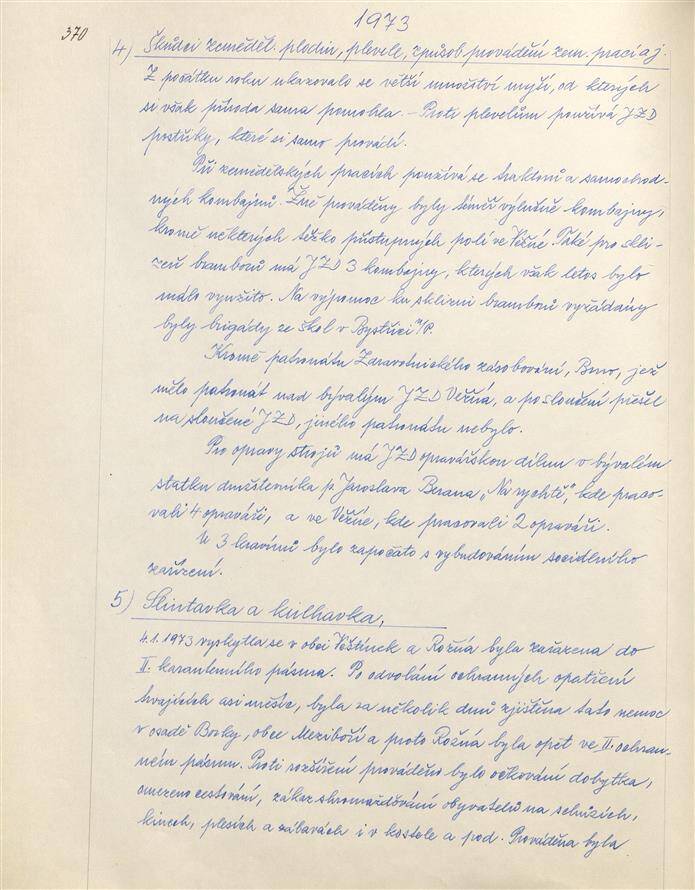 370
1973
4) Škůdci zeměděl. plodin, plevele, způsob provádění zem. prací a j.
Z počátku roku ukazovalo se větší množství myší, od kterých
si však příroda sama pomohla. – Proti plevelům používá JZD
postřiky, které si samo provádí.
Při zemědělských pracích používá se traktorů a samochod-
ných kombajnů. Žně prováděny byly téměř výlučně kombajny,
kromě některých těžko přístupných polí ve Věžné. Také pro skli-
zeň bramborů má JZD 3 kombajny, kterých však letos bylo
málo využito. Na výpomoc ku sklizni bramborů vyžádány
byly brigády ze škol v Bystřici n/P.
Kromě patronátu Zdravotnického zásobování, Brno, jež
mělo patronát nad bývalým JZD Věžná, a po sloučení přešel
na sloučené JZD, jiného patronátu nebylo.
Pro opravy strojů má JZD opravářskou dílnu v bývalém
statku družstevníka p. Jaroslava Berana „Na rychtě", kde praco-
vali 4 opraváři, a ve Věžné, kde pracovali 2 opraváři.
U 3 kravínů bylo započato s vybudováním sociálního
zařízení.
5) Slintavka a kulhavka.
4.1.1973 vyskytla se v obci Věštínek a Rožná byla zařazena do
II. karanténního pásma. Po odvolání ochranných opatření
trvajících asi měsíc, byla za několik dnů zjištěna tato nemoc
v osadě Borky, obce Meziboří a proto Rožná byla opět ve II. ochran-
ném pásmu. Proti rozšíření prováděno bylo očkování dobytka,
omezeno cestování, zákaz shromažďování obyvatelů na schůzích,
kinech, plesích a zábavách i v kostele a pod. Prováděna byla